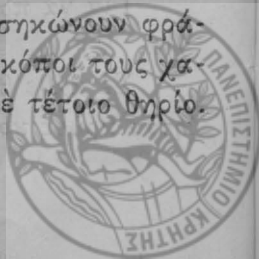 σηκώνουν φρά-
κόποι τους χα-
ὲ τέτοιο θηρίο.
ΠΑΝΕΠΙΣΤΗΜΙΟ ΚΡΗΤΗΣ